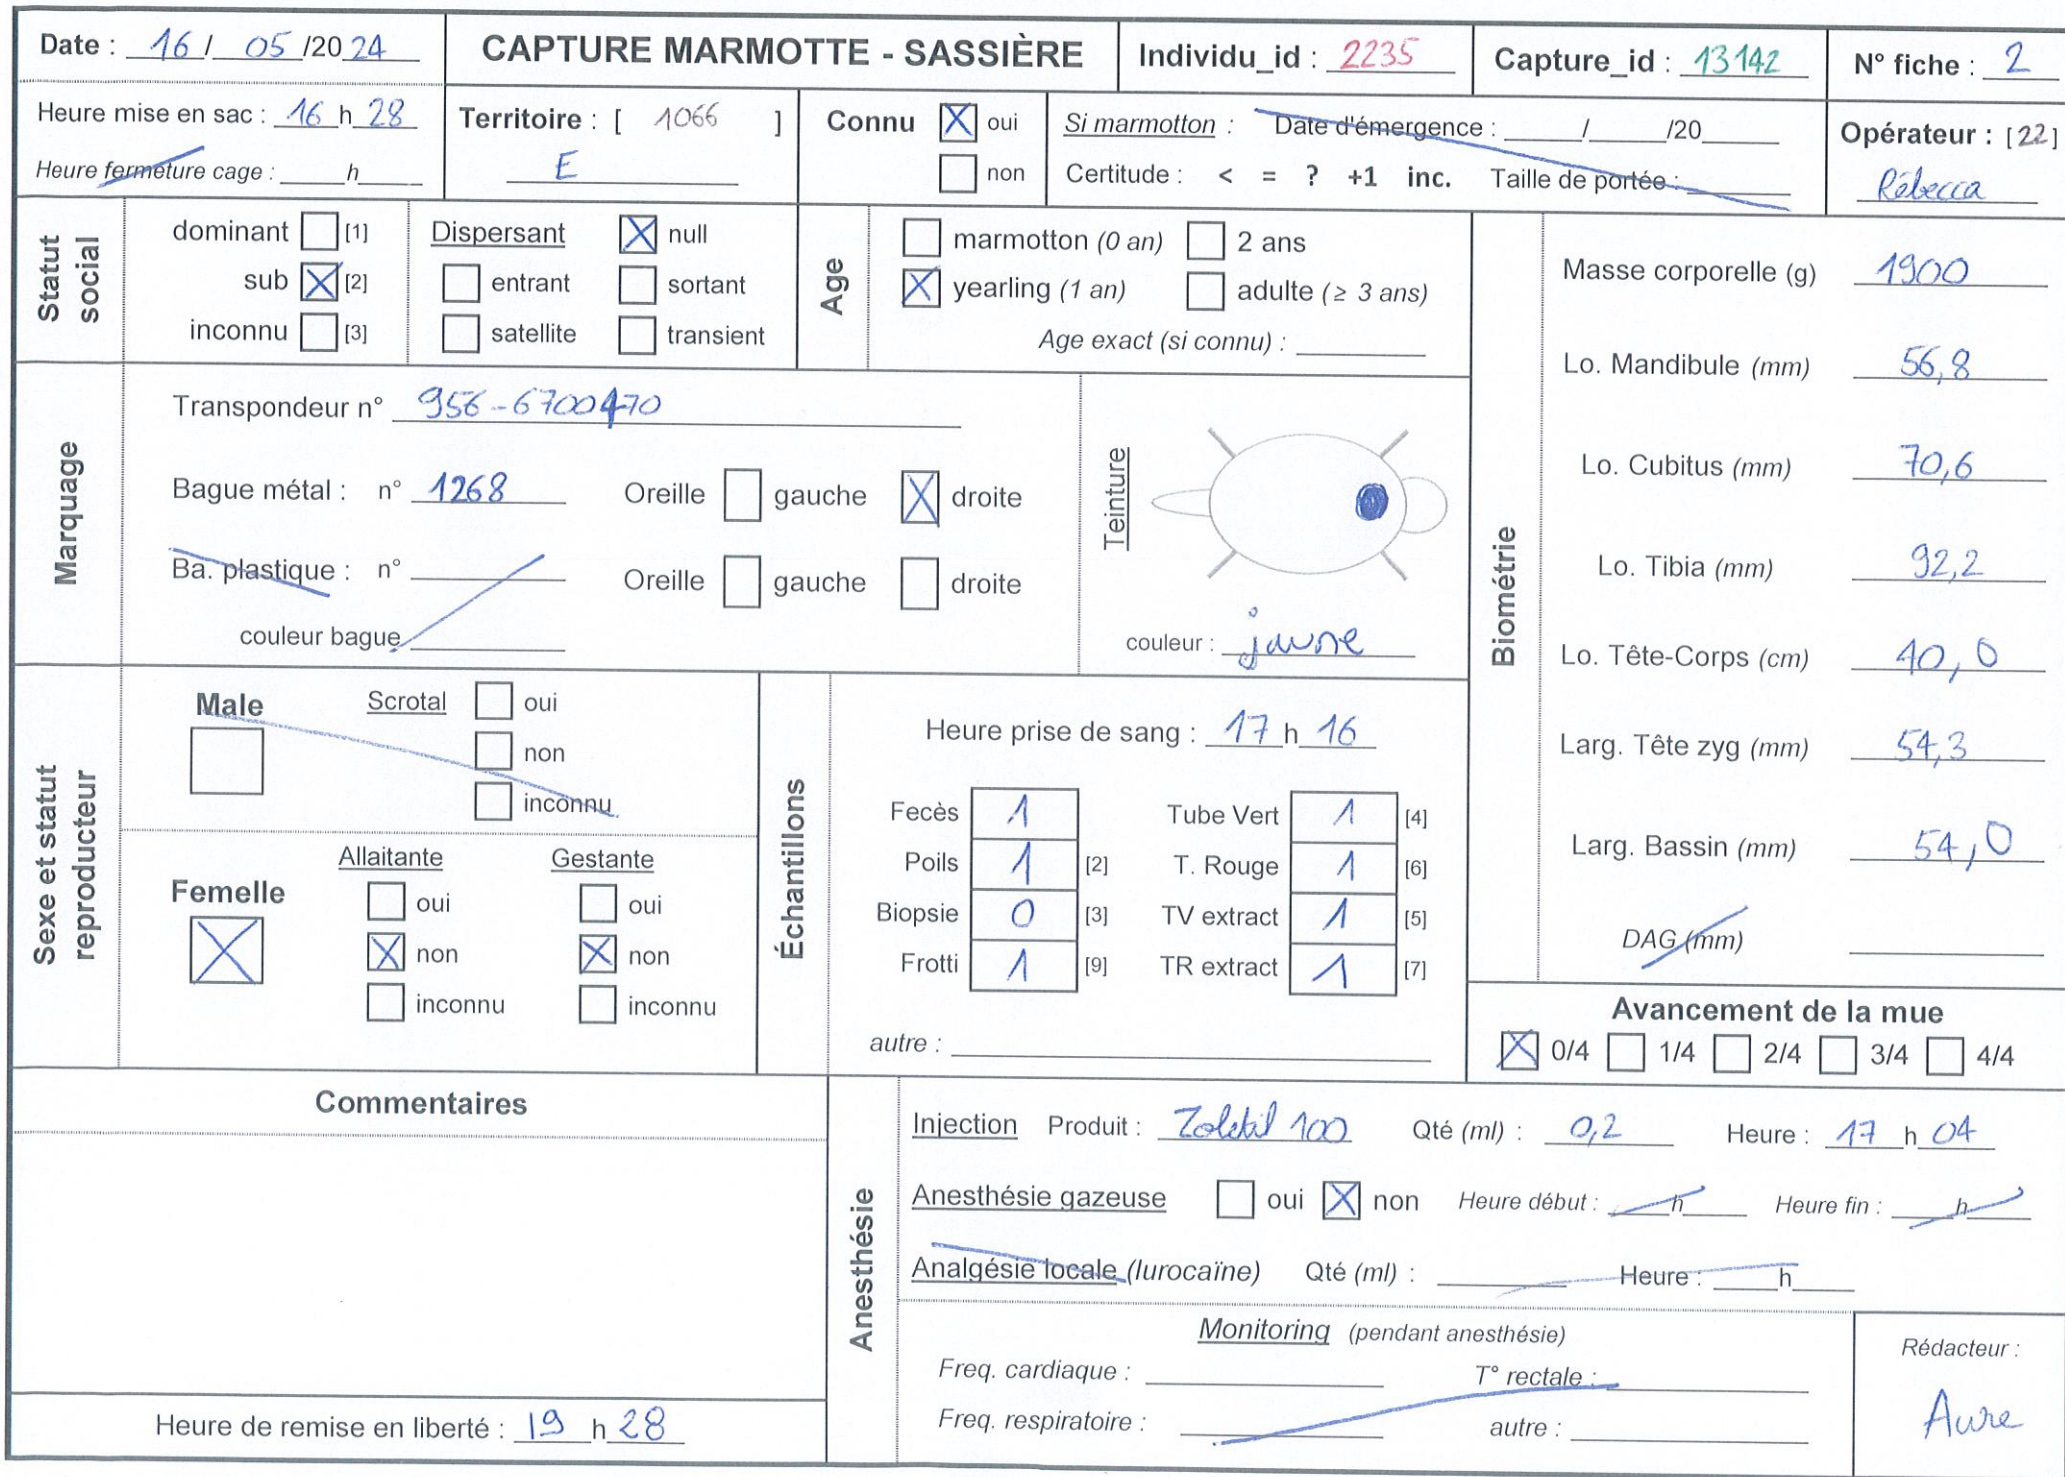 Date : 16 / 05 /2024 CAPTURE MARMOTTE - SASSIÈRE Individu_id : 2235 Capture_id : 13142 N° fiche : 2
Heure mise en sac : 16 h 28 Territoire : [ 1066 ] Connu oui Si marmotton : Date d'émergence : / /20 Opérateur : [22]
Heure fermeture cage : h E non Certitude : < = ? +1 inc. Taille de portée : Rébecca
Statut social
dominant [1] Dispersant null
sub [2] entrant sortant
inconnu [3] satellite transient
Age
marmotton (0 an) 2 ans
yearling (1 an) adulte (≥ 3 ans)
Age exact (si connu) :
Marquage
Transpondeur n° 956-6700470
Bague métal : n° 1268 Oreille gauche droite
Ba. plastique : n° Oreille gauche droite
couleur bague
Teinture
couleur : jaune
Biométrie
Masse corporelle (g) 1900
Lo. Mandibule (mm) 56,8
Lo. Cubitus (mm) 70,6
Lo. Tibia (mm) 92,2
Lo. Tête-Corps (cm) 40,0
Larg. Tête zyg (mm) 54,3
Larg. Bassin (mm) 54,0
DAG (mm)
Sexe et statut reproducteur
Male Scrotal oui
non
inconnu
Femelle Allaitante Gestante
oui oui
non non
inconnu inconnu
Échantillons
Heure prise de sang : 17 h 16
Fecès 1 Tube Vert 1 [4]
Poils 1 [2] T. Rouge 1 [6]
Biopsie 0 [3] TV extract 1 [5]
Frotti 1 [9] TR extract 1 [7]
autre :
Avancement de la mue
0/4 1/4 2/4 3/4 4/4
Commentaires
Heure de remise en liberté : 19 h 28
Anesthésie
Injection Produit : Zoletil 100 Qté (ml) : 0,2 Heure : 17 h 04
Anesthésie gazeuse oui non Heure début : h Heure fin : h
Analgésie locale (lurocaïne) Qté (ml) : Heure : h
Monitoring (pendant anesthésie)
Freq. cardiaque : T° rectale :
Freq. respiratoire : autre :
Rédacteur :
Aure